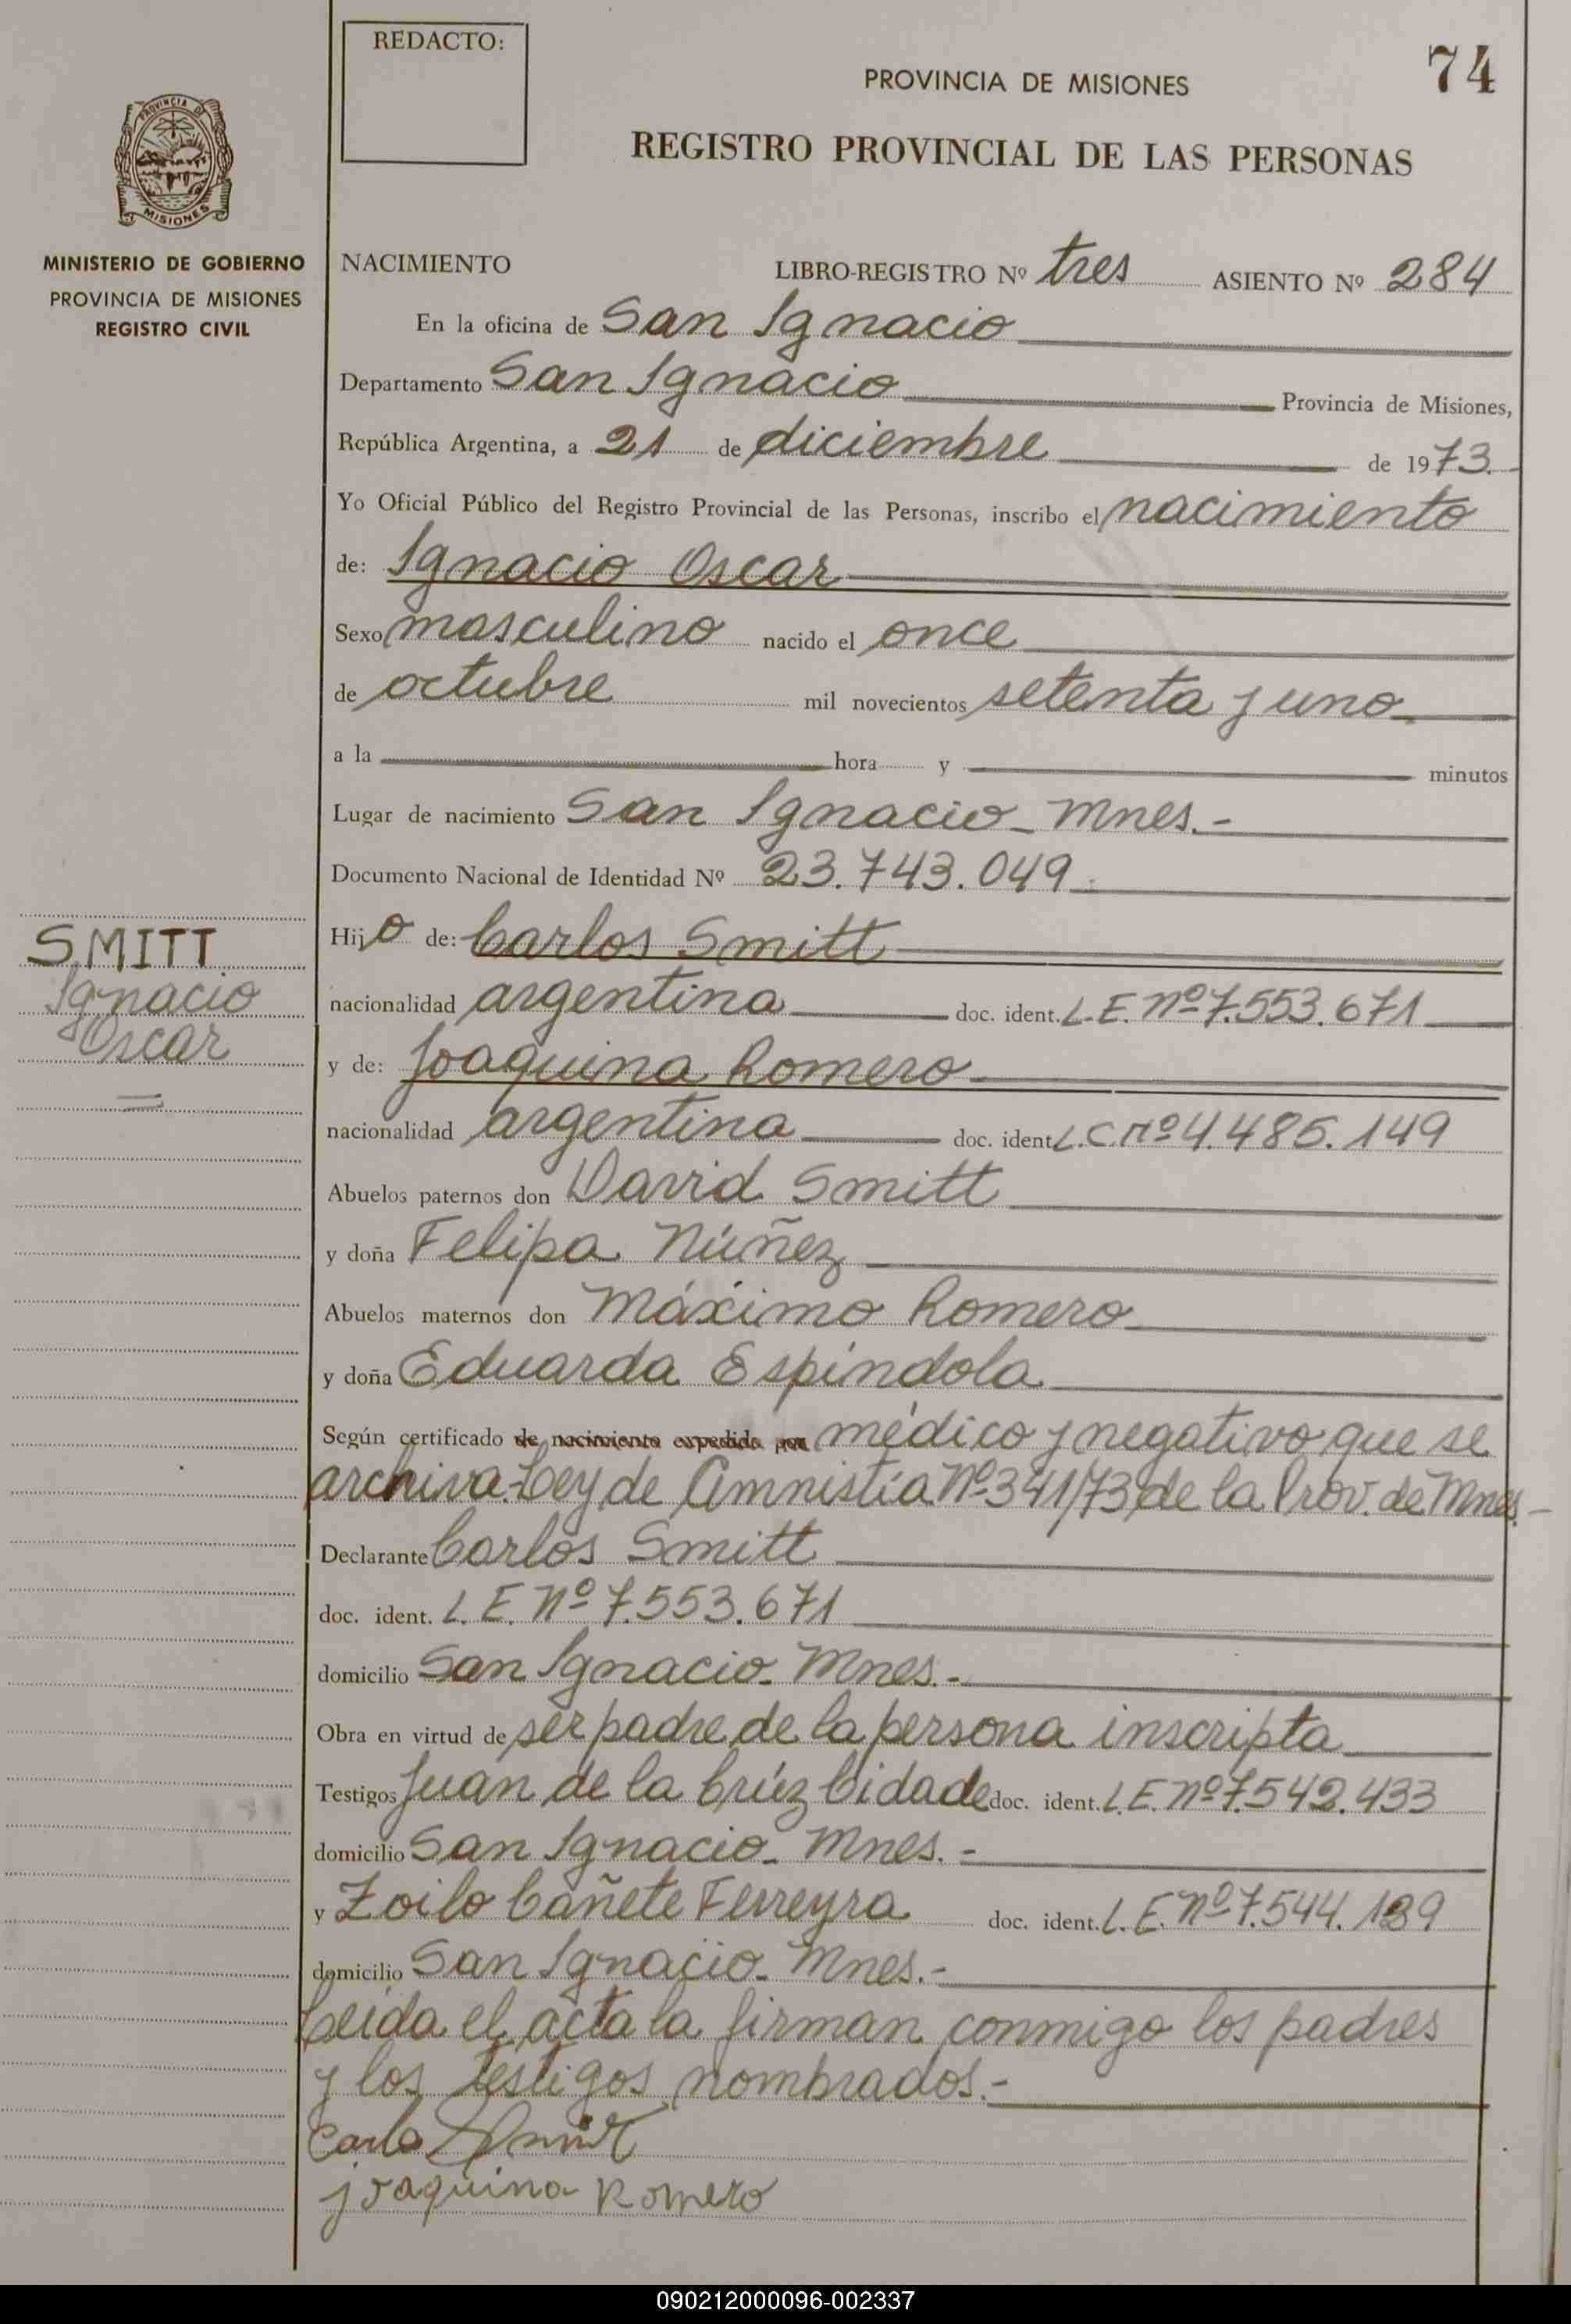 REDACTO:
74
PROVINCIA DE MISIONES
REGISTRO PROVINCIAL DE LAS PERSONAS
PROVINCIA DE
MISIONES
MINISTERIO DE GOBIERNO
PROVINCIA DE MISIONES
REGISTRO CIVIL
NACIMIENTO LIBRO-REGISTRO Nº tres ASIENTO Nº 284
En la oficina de San Ignacio
Departamento San Ignacio Provincia de Misiones,
República Argentina, a 21 de diciembre de 1973.
Yo Oficial Público del Registro Provincial de las Personas, inscribo el nacimiento
de: Ignacio Oscar
Sexo masculino nacido el once
de octubre mil novecientos setenta y uno
a la hora y minutos
Lugar de nacimiento San Ignacio - Mnes.-
Documento Nacional de Identidad Nº 23.743.049
SMITT
Ignacio
Oscar
Hijo de: Carlos Smitt
nacionalidad argentina doc. ident. L.E. Nº 7.553.671
y de: Joaquina Romero
nacionalidad argentina doc. ident. L.C. nº 4.485.149
Abuelos paternos don David Smitt
y doña Felipa Núñez
Abuelos maternos don Máximo Romero
y doña Eduarda Espíndola
Según certificado de nacimiento expedido por médico y negativo que se
archiva. Ley de Amnistía Nº 341/73 de la Prov. de Mnes.-
Declarante Carlos Smitt
doc. ident. L.E. Nº 7.553.671
domicilio San Ignacio - Mnes.-
Obra en virtud de ser padre de la persona inscripta
Testigos Juan de la Crúz Cidade doc. ident. L.E. nº 7.542.433
domicilio San Ignacio - Mnes.-
y Zoilo Cañete Ferreyra doc. ident. L.E. nº 7.544.189
domicilio San Ignacio - Mnes.-
Leída el acta la firman conmigo los padres
y los testigos nombrados.-
Carlo Smitt
joaquina Romero
090212000096-002337